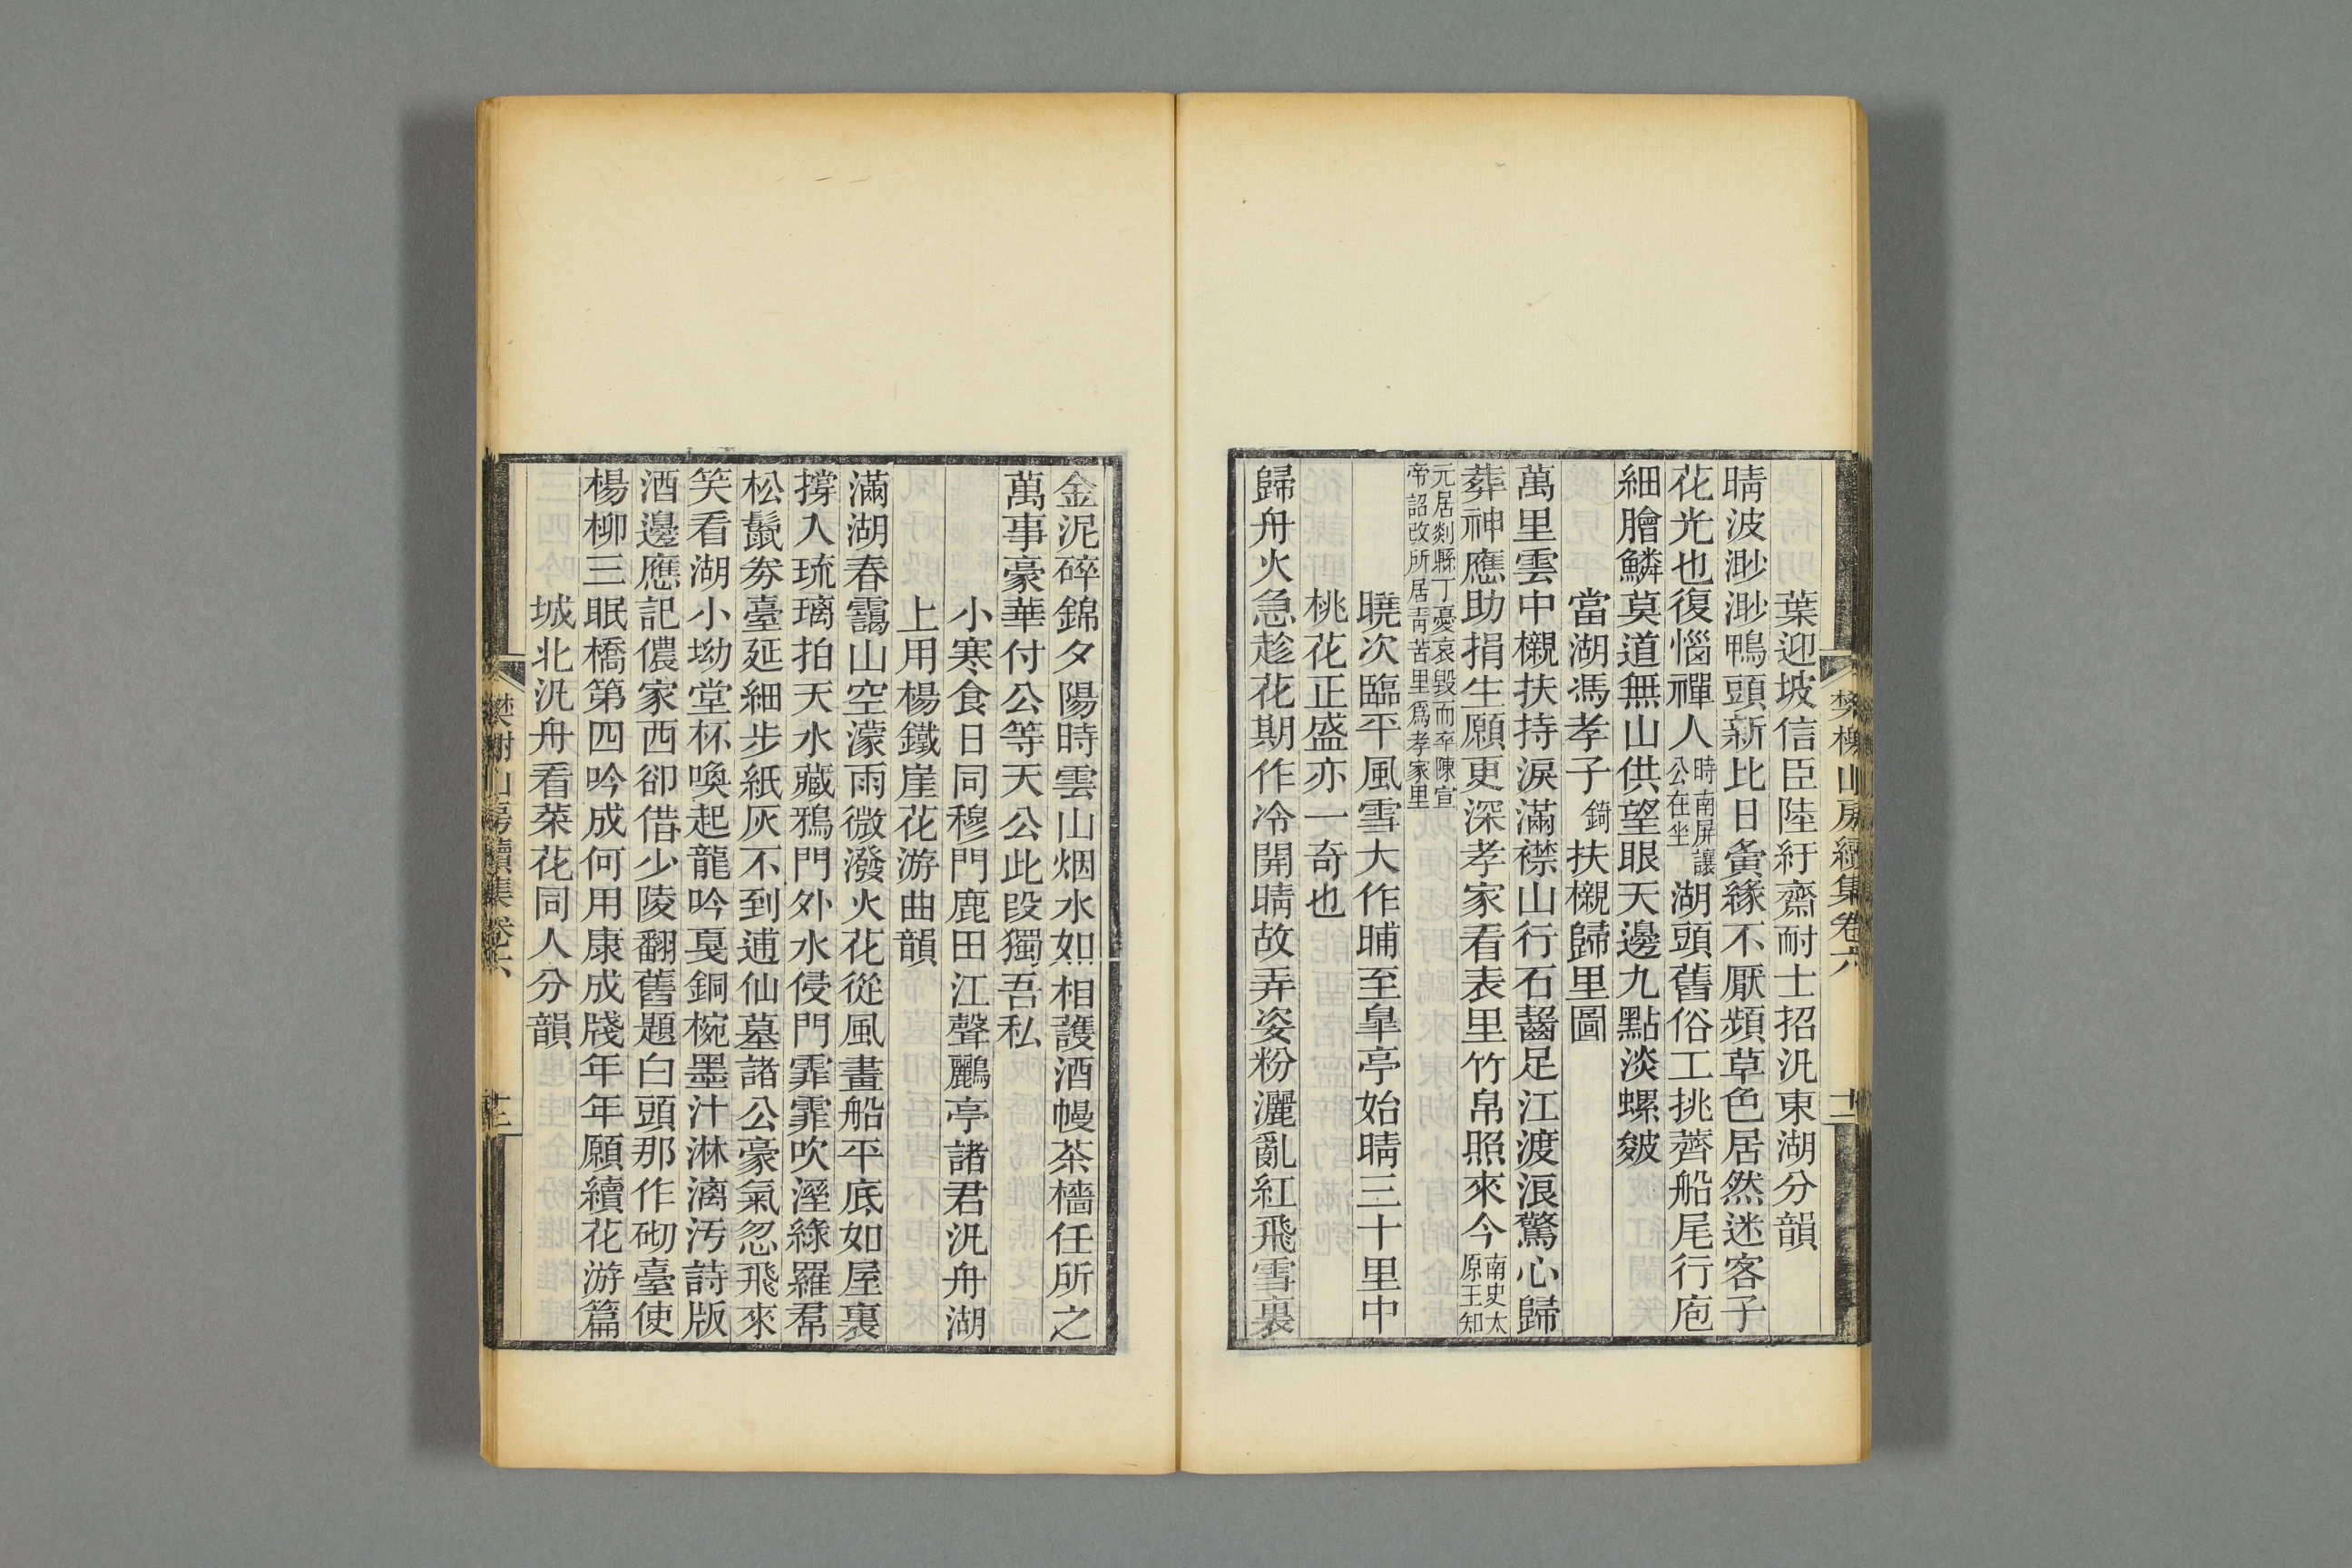 樊榭山房續集卷六
十二
葉迎坡信臣陸紆齋耐士招汎東湖分韻
晴波渺渺鴨頭新比日夤緣不厭頻草色居然迷客子
花光也復惱禪人時南屏讓公在坐湖頭舊俗工挑薺船尾行庖
細膾鱗莫道無山供望眼天邊九點淡螺皴
當湖馮孝子錡扶櫬歸里圖
萬里雲中櫬扶持淚滿襟山行石齧足江渡浪驚心歸
葬神應助捐生願更深孝家看表里竹帛照來今南史太原王知
元居剡縣丁憂哀毀而卒陳宣帝詔改所居青苦里爲孝家里
曉次臨平風雪大作晡至皐亭始晴三十里中
桃花正盛亦一奇也
歸舟火急趁花期作冷開晴故弄姿粉灑亂紅飛雪裏
金泥碎錦夕陽時雲山烟水如相護酒幔茶檣任所之
萬事豪華付公等天公此段獨吾私
小寒食日同穆門鹿田江聲鸝亭諸君汎舟湖
上用楊鐵崖花游曲韻
滿湖春靄山空濛雨微潑火花從風畫船平底如屋裏
撐入琉璃拍天水藏鴉門外水侵門霏霏吹溼綠羅帬
松鬣券臺延細步紙灰不到逋仙墓諸公豪氣忽飛來
笑看湖小坳堂杯喚起龍吟戛銅椀墨汁淋漓汚詩版
酒邊應記儂家西卻借少陵翻舊題白頭那作砌臺使
楊柳三眠橋第四吟成何用康成牋年年願續花游篇
城北汎舟看菜花同人分韻
樊榭山房續集卷六